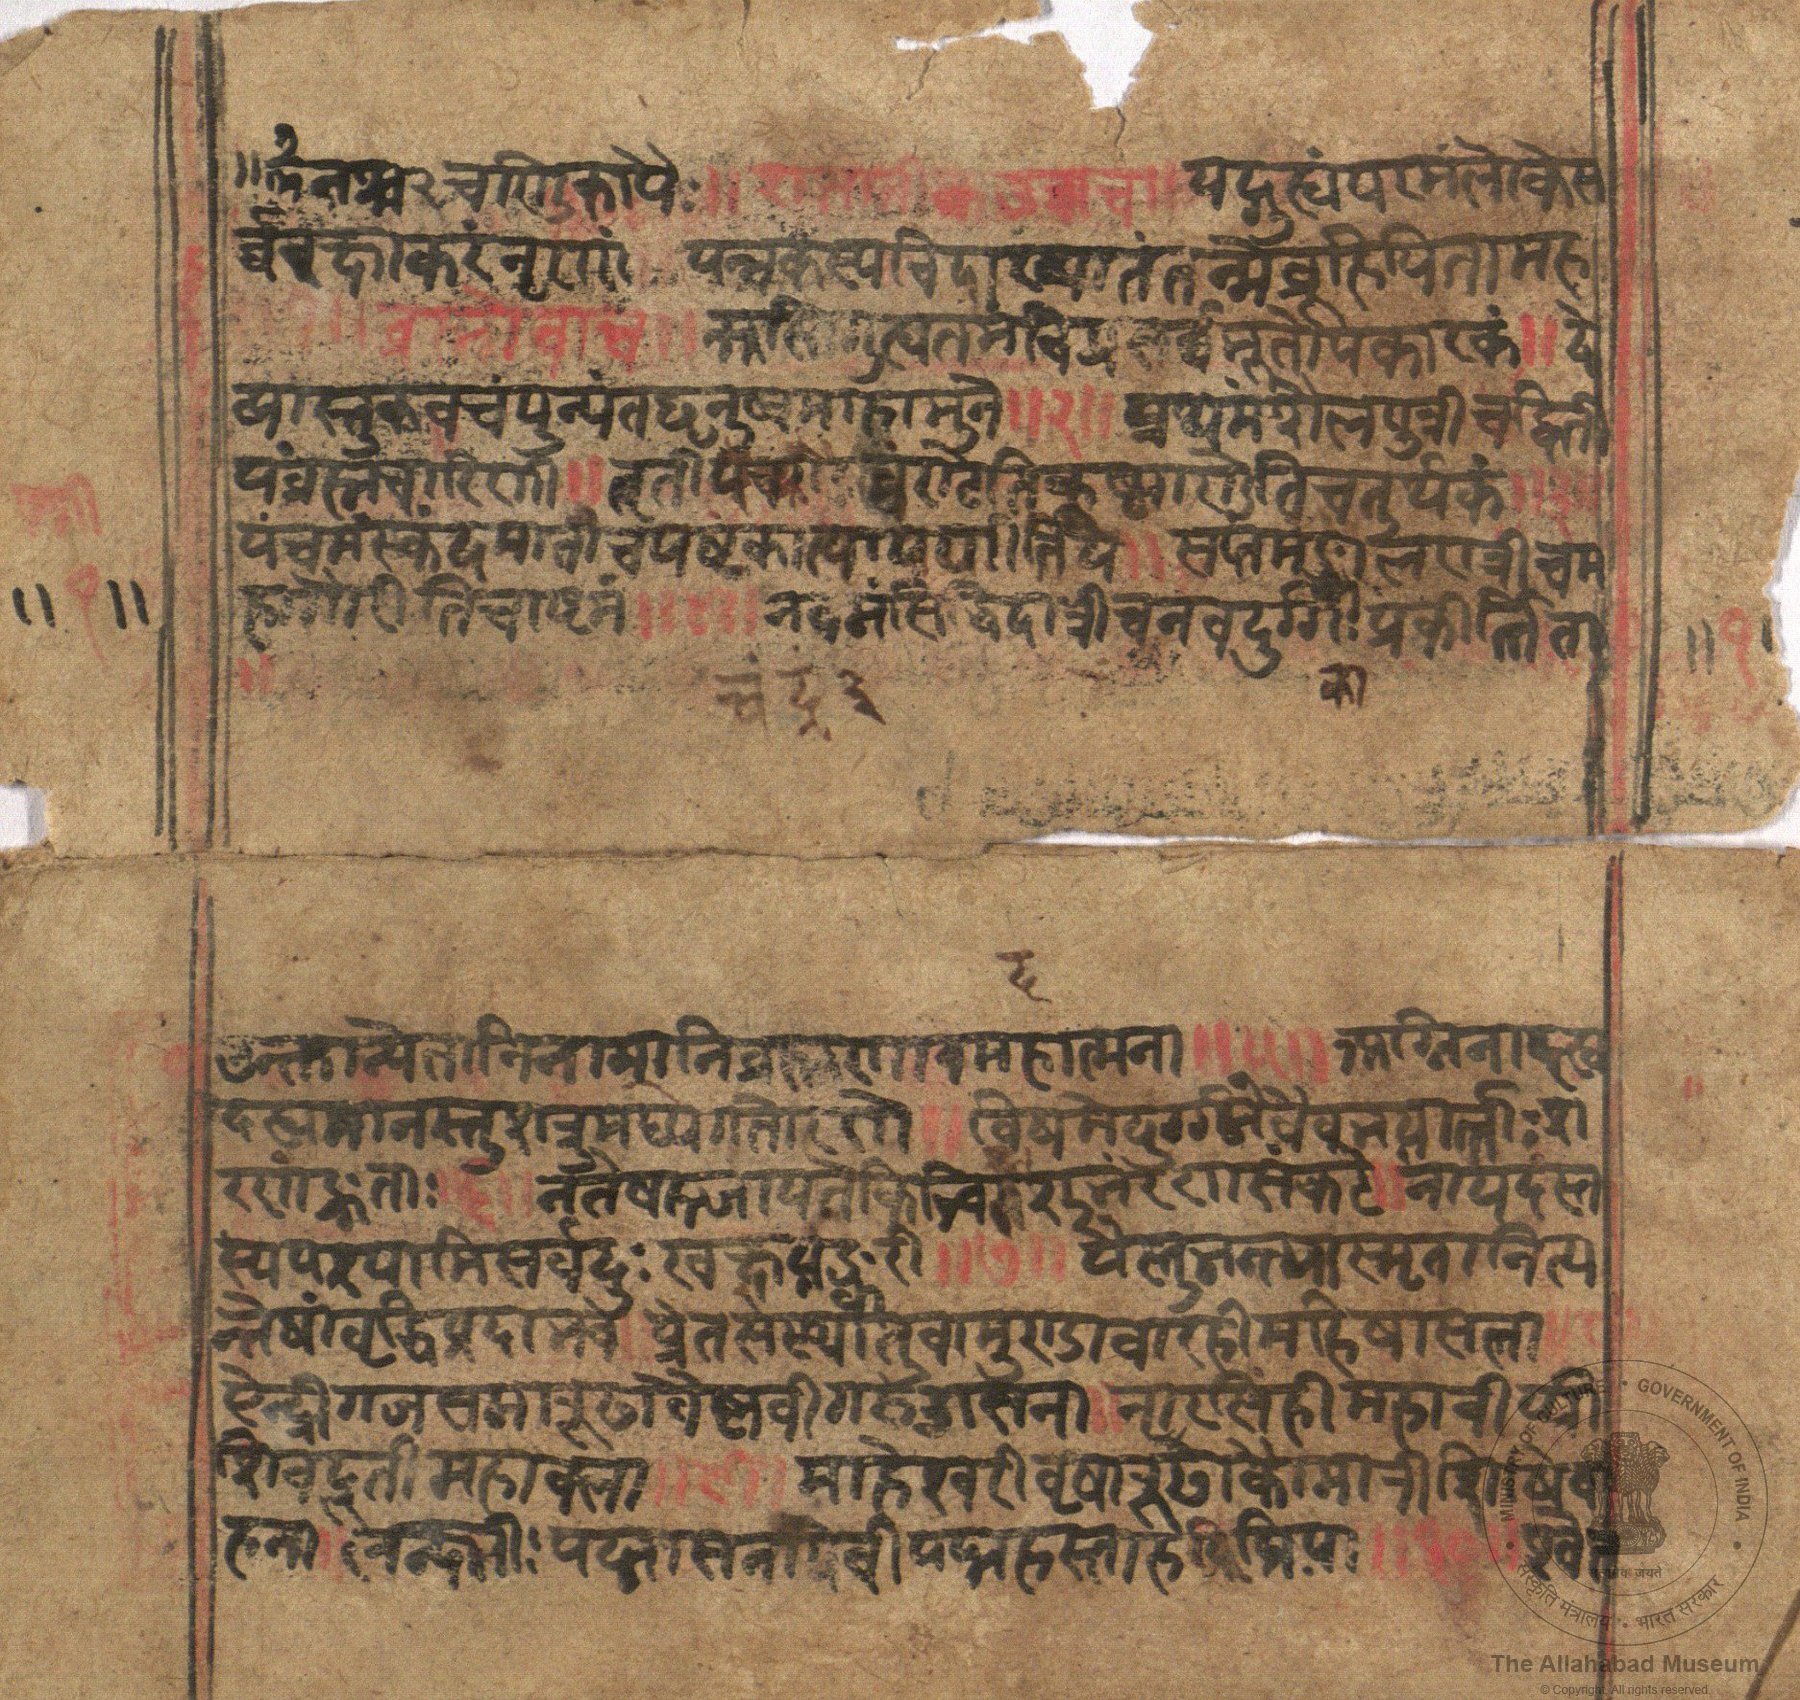 ॥ॐ नमश्चरचण्डिकायै: ॥ उवाच॥ यद्गुह्यं परमं लोके स
र्व्वरक्षाकरं नृणां यन्नकस्यचिदाख्यातं तन्मेब्रूहि पितामह
१॥ ब्रह्मोवाच॥ अस्तिगुह्यतमंविप्रसर्व्वभूतोपकारकं॥ दे
व्यास्तुकवचंपुन्यंतछृनुष्वमाहामुने॥२॥ प्रथमंशैलपुत्री च द्विती
यंब्रह्मचारिणी॥ तृतीयंचन्द्रघंटेतिकुष्माण्डेतिचतुर्थकं॥३॥
पंचमंस्कंदमातीचषष्टंकात्यायणीतिच॥ सप्तमंकालरात्रीचम
हागौरीतिचाष्टमं॥४॥ नवमंसिद्धिदात्रीचनवदुर्ग्गा:प्रकीर्त्तिता
॥
चंद्र
का
श्री
॥१॥
॥१॥
६
उक्तान्येतानिनामानिब्रह्मणावमहात्मना॥५॥ अग्निनादह्य
दह्यमानस्तुशत्रुमध्यगतोरणे॥ विषमेदुर्ग्गमेचैवभयार्त्ता:श
रणंगता:॥६॥ नतेषांजायतेकिंचिदशुभंरणसंकटे॥ नापदंत
स्यपश्यामिसर्व्वदु:ख॥७॥ यैस्तुभक्त्यास्मृतानित्य
तेषांवृद्धिप्रदाभवे॥ प्रेतसंस्थातुचामुण्डावारहीमहिषासना॥८॥
ऐन्द्रीगजसमारूढावैष्णवीगरुडासना॥ नारसिंहीमहावीर्या
शिवदूतीमहाबला॥९॥ माहेश्वरीवृषारूढाकौमारीशिषिवा
हना॥ लक्ष्मी:पद्मासनादेवीपद्महस्ताहरिप्रिया॥१०॥ श्वेत
MINISTRY OF CULTURE • GOVERNMENT OF INDIA
सत्यमेव जयते
संस्कृति मंत्रालय • भारत सरकार
The Allahabad Museum
© Copyright. All rights reserved